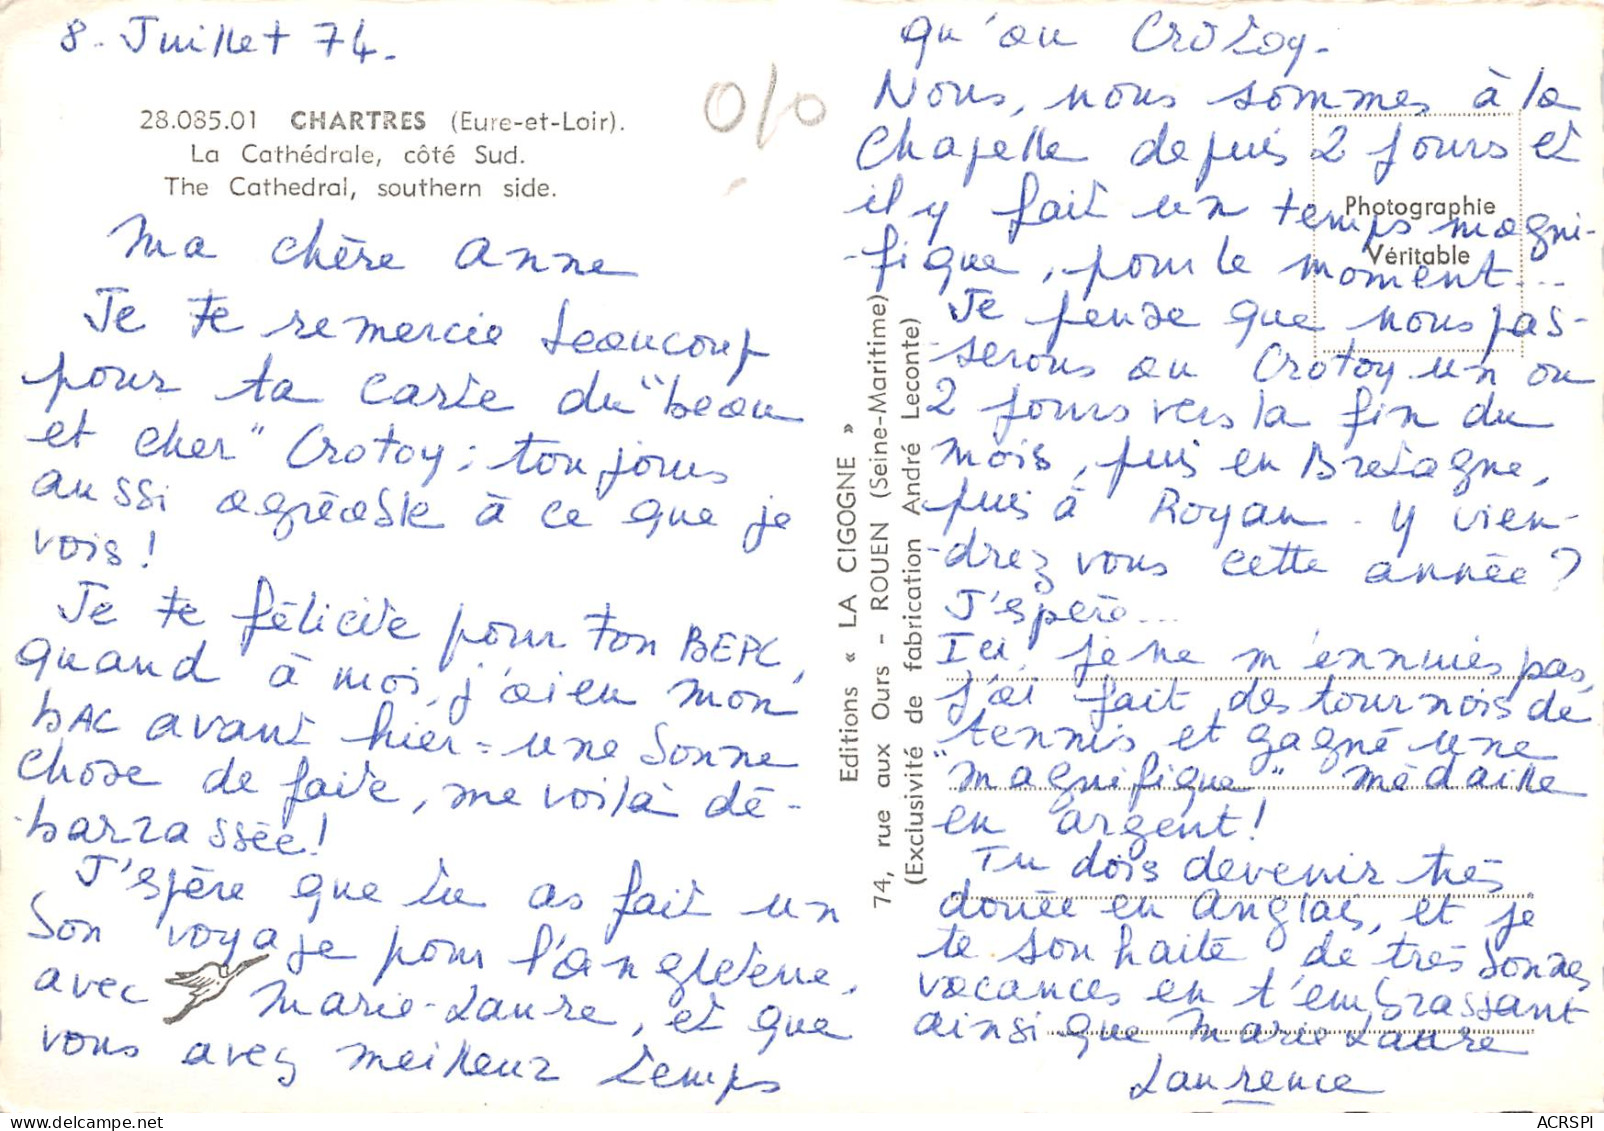 8. Juillet 74.
28.085.01 CHARTRES (Eure-et-Loir).
La Cathédrale, côté Sud.
The Cathedral, southern side.
Ma chère Anne
Je te remercie beaucoup
pour ta carte du "beau
et cher" Crotoy ; toujours
aussi agréable à ce que je
vois !
Je te félicite pour ton BEPC,
quand à moi, j'ai eu mon
BAC avant hier = une bonne
chose de faite, me voilà dé-
-barrassée !
J'espère que tu as fait un
bon voyage pour l'angleterre,
avec Marie-Laure, et que
vous avez meilleur temps
qu'au Crotoy.
Nous, nous sommes à la
Chapelle depuis 2 jours et
il y fait un temps magni-
-fique, pour le moment...
Je pense que nous pas-
-serons au Crotoy un ou
2 jours vers la fin du
mois, puis en Bretagne,
puis à Royan. Y vien-
-drez vous cette année ?
J'espère...
Ici, je ne m'ennuies pas,
j'ai fait des tournois de
tennis et gagné une
"magnifique" médaille
en argent !
Tu dois devenir très
douée en Anglais, et je
te souhaite de très bonnes
vacances en t'embrassant
ainsi que Marie Laure
Laurence
Photographie
Véritable
Editions « LA CIGOGNE »
74, rue aux Ours - ROUEN (Seine-Maritime)
(Exclusivité de fabrication André Leconte)
0/0
ACRSPI